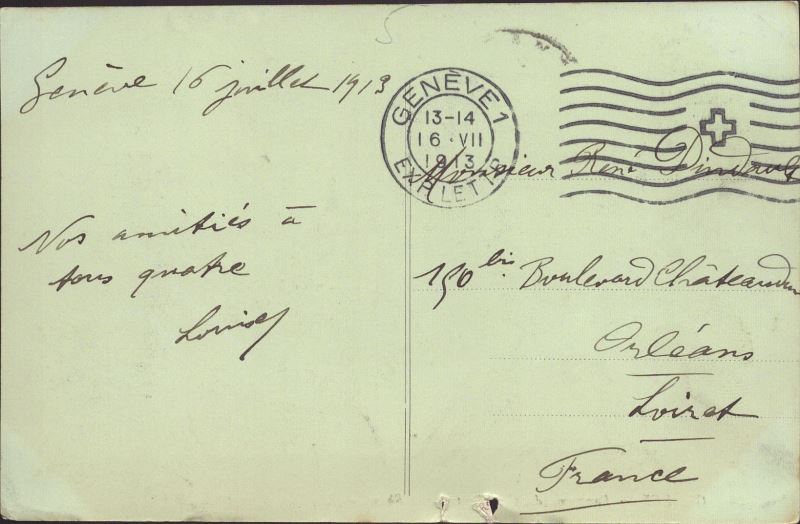 Genève 16 juillet 1913
Nos amitiés à
tous quatre
Louise
GENÈVE 1
13-14
16·VII
1913
EXP. LETTR.
Monsieur René
150 bis Boulevard Châteaudun
Orléans
Loiret
France